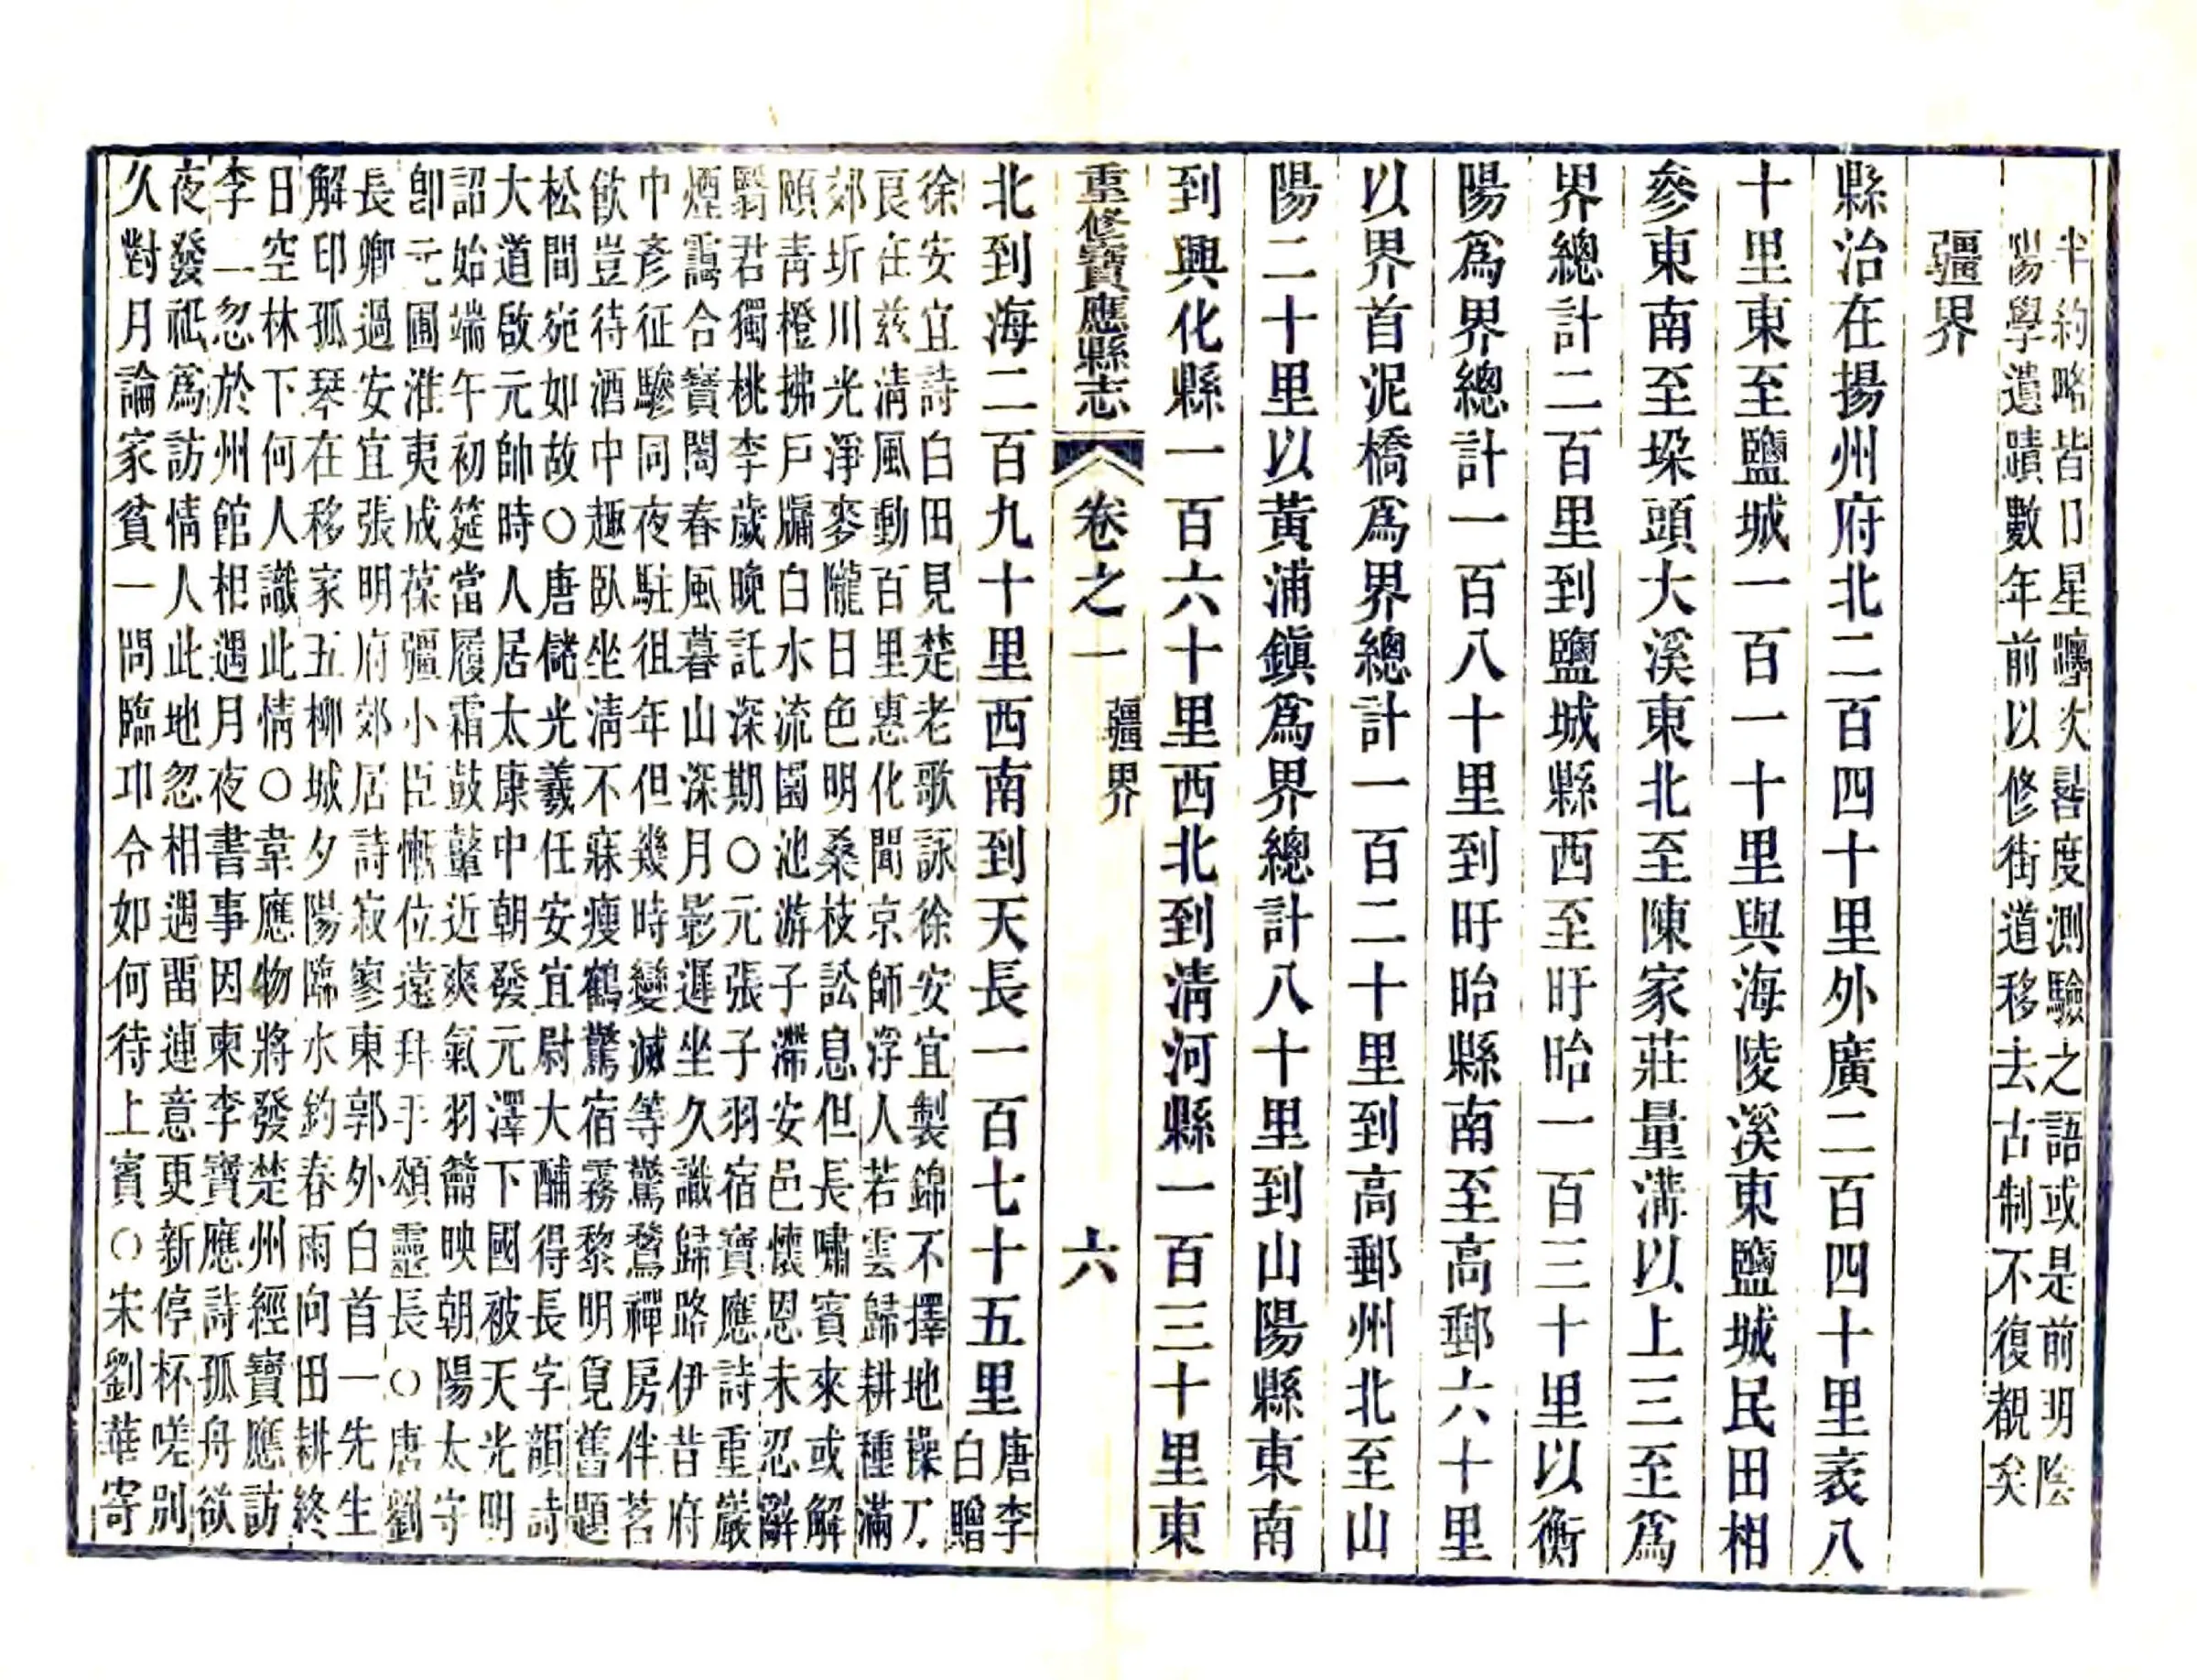 半約略皆日星躔次晷度測驗之語或是前明陰
陽學遺蹟數年前以修街道移去古制不復覩矣
疆界
縣治在揚州府北二百四十里外廣二百四十里袤八
十里東至鹽城一百一十里與海陵溪東鹽城民田相
參東南至垜頭大溪東北至陳家莊量溝以上三至爲
界總計二百里到鹽城縣西至盱眙一百三十里以衡
陽爲界總計一百八十里到盱眙縣南至高郵六十里
以界首泥橋爲界總計一百二十里到高郵州北至山
陽二十里以黃浦鎮爲界總計八十里到山陽縣東南
到興化縣一百六十里西北到淸河縣一百三十里東
重修寶應縣志
卷之一
疆界
六
北到海二百九十里西南到天長一百七十五里
唐李
白贈
徐安宜詩白田見楚老歌詠徐安宜製錦不擇地操刀
良在茲淸風動百里惠化聞京師浮人若雲歸耕種滿
郊圻川光淨麥隴日色明桑枝訟息但長嘯賓來或解
頤靑橙拂戶牖白水流園池游子滯安邑懷恩未忍辭
翳君獨桃李歲晚託深期〇元張子羽宿寶應詩重巖
煙靄合寶閣春風暮山深月影遲坐久識歸路伊昔府
中彥征驂同夜駐徂年但幾時變滅等驚鶩禪房伴茗
飲豈待酒中趣臥坐淸不寐瘦鶴驚宿霧黎明覓舊題
松間宛如故〇唐儲光羲任安宜尉大酺得長字韻詩
大道啟元帥時人居太康中朝發元澤下國被天光明
詔始端午初筵當履霜鼓鼙近爽氣羽籥映朝陽太守
卽元圃淮夷成葆疆小臣慚位遠拜手頌靈長〇唐劉
長卿過安宜張明府郊居詩寂寥東郭外白首一先生
解印孤琴在移家五柳城夕陽臨水釣春雨向田耕終
日空林下何人識此情〇韋應物將發楚州經寶應訪
李二忽於州館相遇月夜書事因柬李寶應詩孤舟欲
夜發祗爲訪情人此地忽相遇留連意更新停杯嗟別
久對月論家貧一問臨卭令如何待上賓〇宋劉華寄